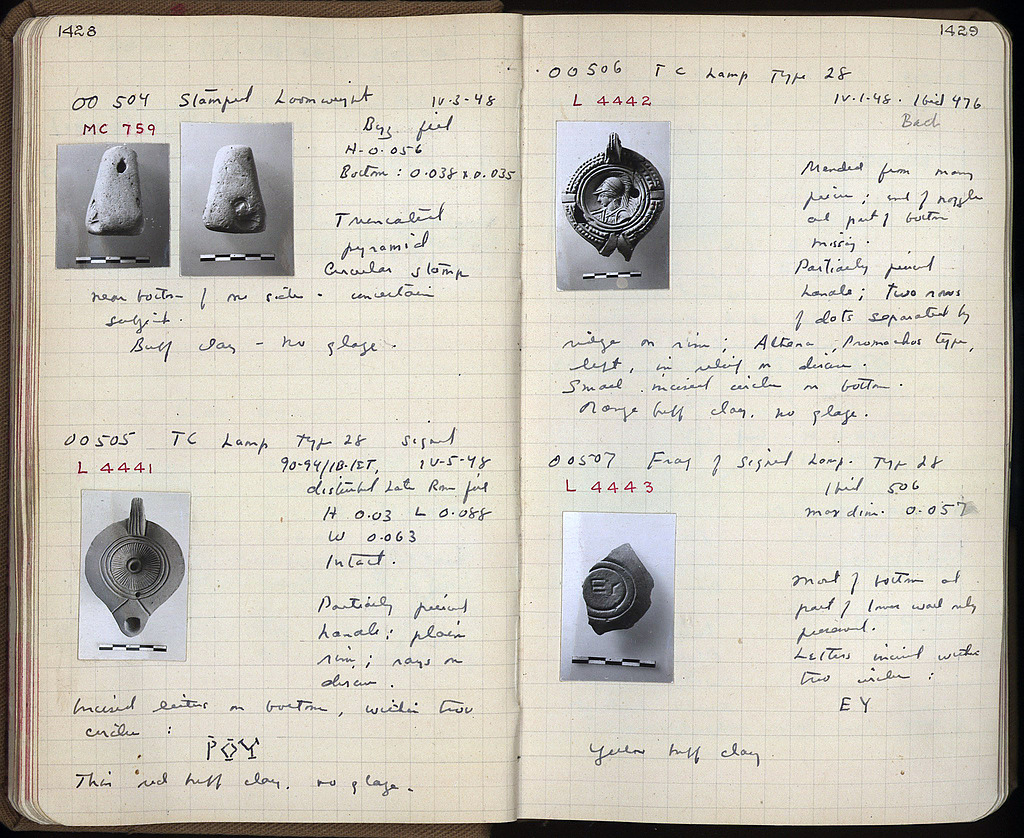 1428
OO 504 Stamped Loomweight IV-3-48
MC 759
Byz. fill
H-0.056
Bottom: 0.038 x 0.035
Truncated
pyramid
Circular stamp
near bottom of one side - uncertain
subject.
Buff clay - no glaze.
OO505 TC Lamp Type 28 signed
L 4441
90-94/1B-IET, IV-5-48
disturbed Late Rom fill
H 0.03 L 0.088
W 0.063
Intact.
Partially pierced
handle; plain
rim; rays on
discus.
Incised letters on bottom, within two
circles:
ΡΟΥ
Thin red buff clay. no glaze.
1429
OO506 TC Lamp Type 28
L 4442
IV-1-48. Ibid 476
Bad
Mended from many
pieces; end of nozzle
and part of bottom
missing.
Partially pierced
handle; two rows
of dots separated by
ridge on rim; Athena, Promachos type,
left, in relief on discus.
Small incised circle on bottom.
Orange buff clay, no glaze.
OO507 Frag of Signed Lamp. Type 28
L 4443
Ibid 506
max dim. 0.057
EY
Most of bottom and
part of lower wall only
preserved.
Letters incised within
two circles:
EY
Yellow buff clay